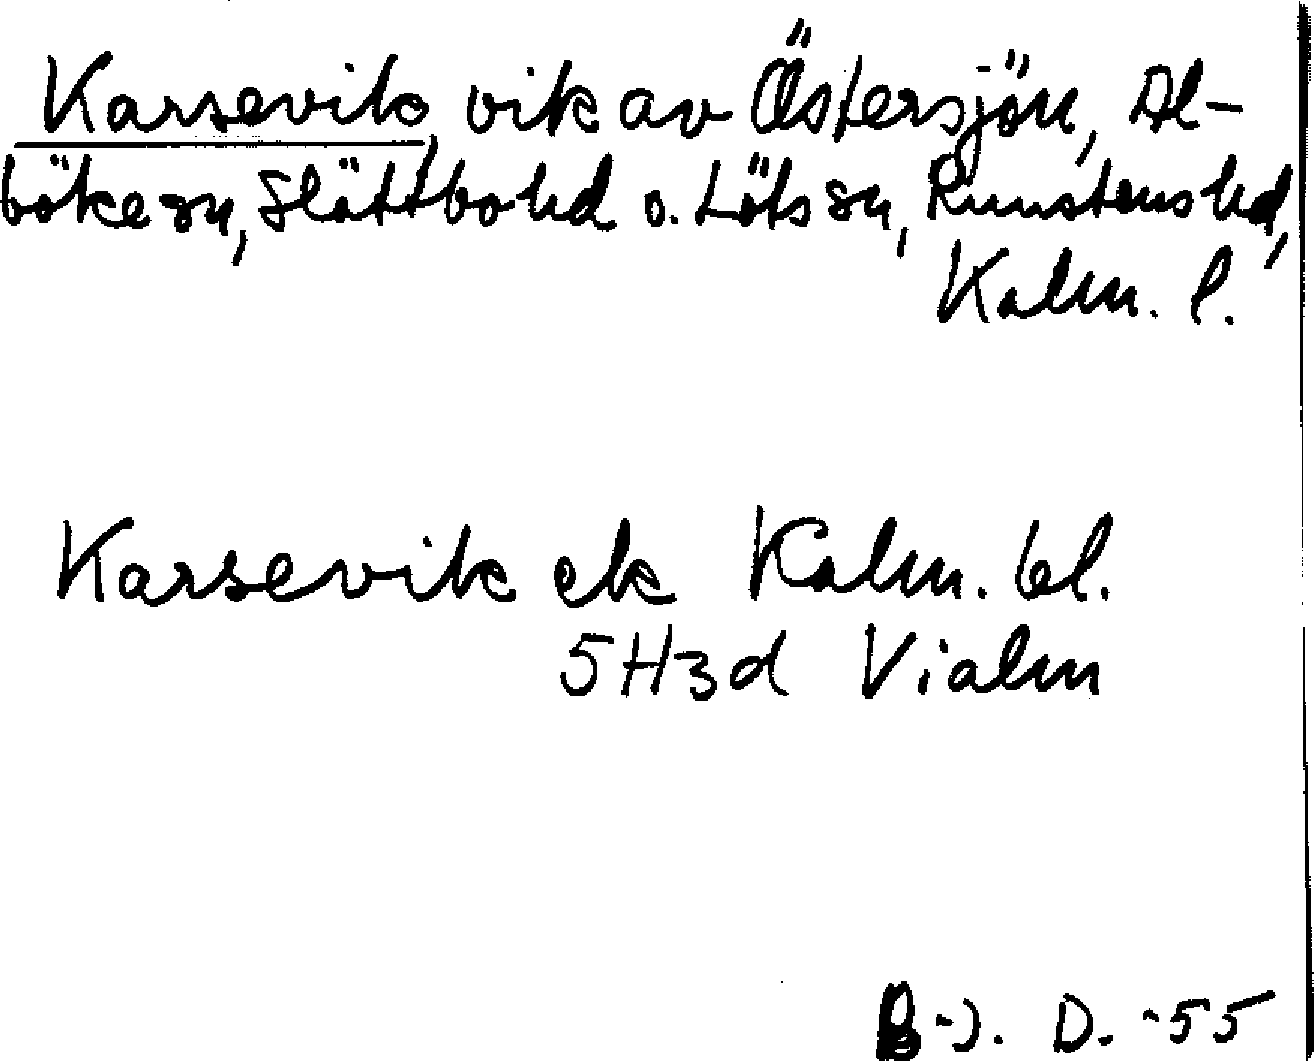 Karsevik, vik av Östersjön, Al-
böke sn, Slättbo hd o. Löts sn, Runstens hd,
Kalm. l.
Karsevik ek Kalm. bl.
5H3d Vialm
B-J. D. -55